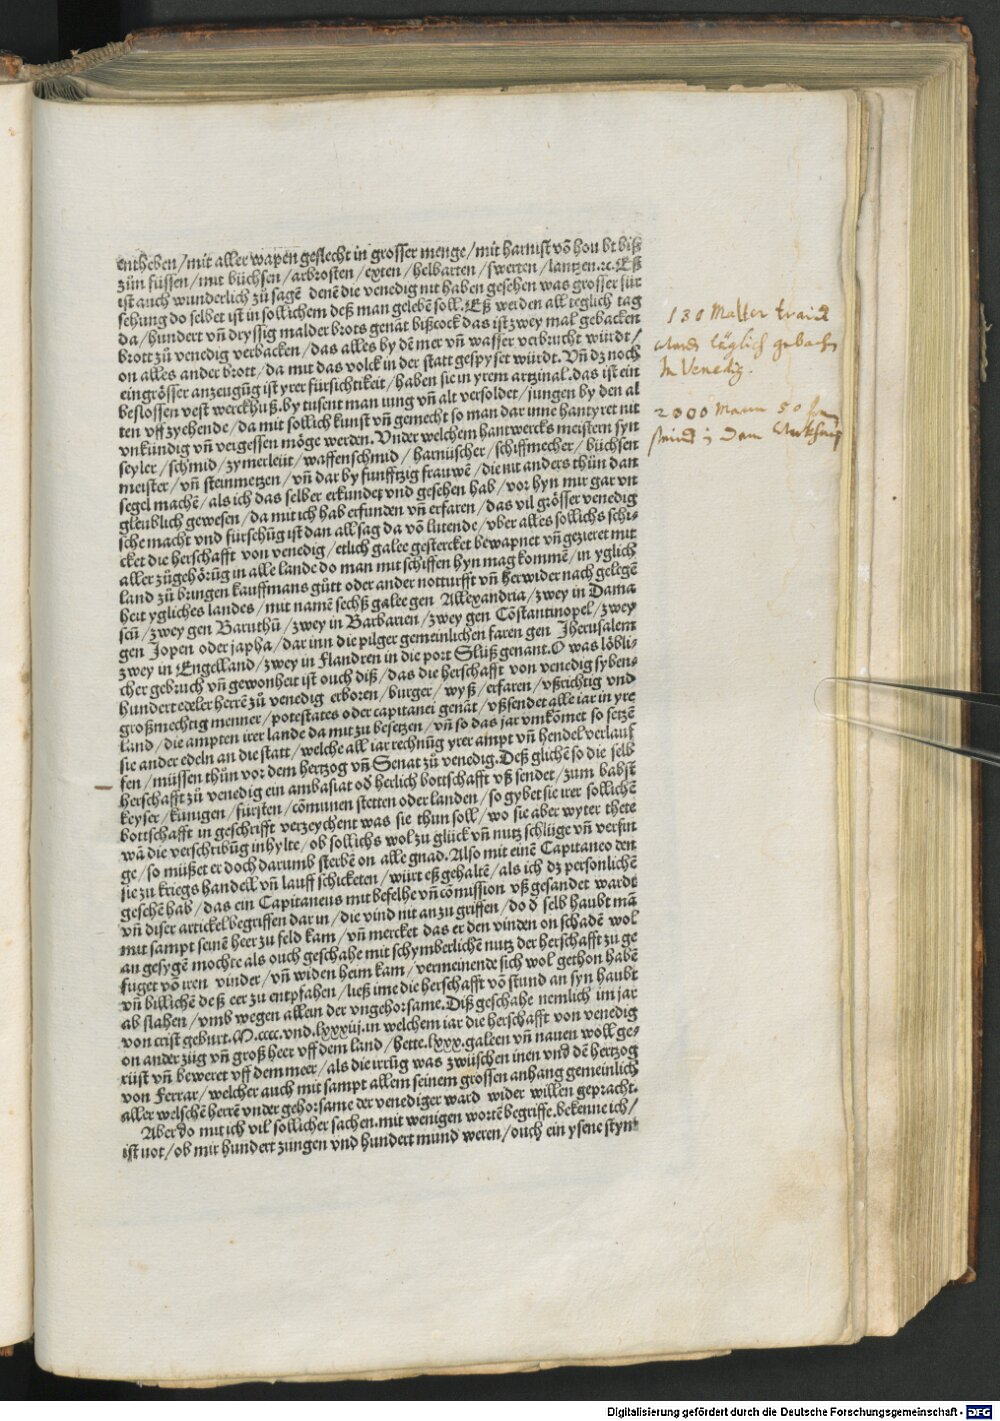 entheben/mit aller wapen geslecht in grosser menge/mit harnist vō houbt biß
zůn füssen/mit büchsen/arbrosten/exten/helbarten/swerten/lantzen.ꝛc.Eß
ist auch wunderlich zů sagē denē die venedig nit haben gesehen was grosser für
sehung do selbet ist in sollichem deß man gelebē soll.Eß werden all teglich tag
da/hundert vn̄ dryssig malder brots genāt bißcock das ist zwey mal gebacken
brott zů venedig verbacken/das alles by dē mer vn̄ wasser verbrucht würdt/
on alles ander brott/da mit das volck in der statt gespyset würdt.Vn̄ dz noch
ein grösser anzeugūg ist yrer fürsichtikeit/haben sie in yrem artzinal.das ist ein
beslossen vest werckhuß.by tusent man iung vn̄ alt versoldet/iungen by den al
ten vff zyehende/da mit sollich kunst vn̄ gemecht so man dar inne hantyret nit
vnkündig vn̄ vergessen möge werden.Vnder welchem hantwercks meistern syn
seyler/schmid/zymerleüt/waffenschmid/harnüscher/schiffmecher/büchsen
meister/vn̄ steinmetzen/vn̄ dar by funfftzig frauwē/die nit anders thůn dan
segel machē/als ich das selber erkundet vnd gesehen hab/vor hyn mir gar vn
gleublich gewesen/da mit ich hab erfunden vn̄ erfaren/das vil grösser venedig
sche macht vnd fürsehūg ist dan all sag da vō lutende/vber alles sollichs schi-
cket die herschafft von venedig/etlich galee gestercket bewapnet vn̄ gezieret mit
aller zůgehörūg in alle lande do man mit schiffen hyn mag kommē/in yglich
land zů bringen kauffmans gůtt oder ander notturfft vn̄ herwider nach gelegē
heit ygliches landes/mit namē sechß galee gen Allexandria/zwey in Dama
scū/zwey gen Baruthū/zwey in Barbarien/zwey gen Cōstantinopel/zwey
gen Jopen oder japha/dar inn die pilger gemeinlichen faren gen Jherusalem
zwey in Engelland/zwey in Flandren in die port Slüß genant.O was löbli-
cher gebruch vn̄ gewonheit ist ouch diß/das die herschafft von venedig syben-
hundert edeler herrē zů venedig erboren/burger/wyß/erfaren/vßrichtig vnd
großmechtig menner/potestates oder capitanei genāt/vßsendet alle iar in yre
land/die ampten irer lande da mit zu besetzen/vn̄ so das jar vmkōmet so setzē
sie ander edeln an die statt/welche all iar rechnūg yrer ampt vn̄ hendel verlauf
fen/müssen thůn vor dem hertzog vn̄ Senat zů venedig.Deß glichē so die selb
herschafft zů venedig ein ambasiat od herlich bottschafft vß sendet/zum babst
keyser/künigen/fürsten/cōmunen stetten oder landen/so gybet sie irer sollichē
bottschafft in geschrifft verzeychent was sie thun soll/wo sie aber wyter thete
wā die verschribūg inhylte/ob sollichs wol zu glück vn̄ nutz schlüge vn̄ verfin
ge/so müßet er doch darumb sterbē on alle gnad.Also mit einē Capitaneo den
sie zu kriegs handell vn̄ lauff schicketen/würt eß gehaltē/als ich dz personlichē
gesehē hab/das ein Capitaneus mit befelhe vn̄ cōmission vß gesandet wardt
vn̄ diser artickel begriffen dar in/die vind nit an zu griffen/do d selb haubt mā
mit sampt seinē heer zu feld kam/vn̄ mercket das er den vinden on schadē wol
an gesygē mochte als ouch geschahe mit schymberlichē nutz der herschafft zu ge
fuget vō iren vinder/vn̄ widen heim kam/vermeinende sich wol gethon habē
vn̄ billichē deß eer zu entpfahen/ließ ime die herschafft vō stund an syn haubt
ab slahen/vmb wegen allein der vngehorsame.Diß geschahe nemlich im jar
von crist geburt.M.cccc.vnd.lxxxiij.in welchem iar die herschafft von venedig
on ander züg vn̄ groß heer vff dem land/hette.lxxx.galeen vn̄ nauen woll ge-
rüst vn̄ beweret vff dem meer/als die irrūg was zwüschen inen vnd dē hertzog
von Ferrar/welcher auch mit sampt allem seinem grossen anhang gemeinlich
aller welschē herrē vnder gehorsame der venediger ward wider willen gepracht.
Aber do mit ich vil sollicher sachen.mit wenigen wortē begriffe.bekenne ich/
ist not/ob mir hundert zungen vnd hundert mund weren/ouch ein ysene stym
130 Malter traid
täglich gebachen
In Venedig.
2000 Mann 50
Digitalisierung gefördert durch die Deutsche Forschungsgemeinschaft - DFG